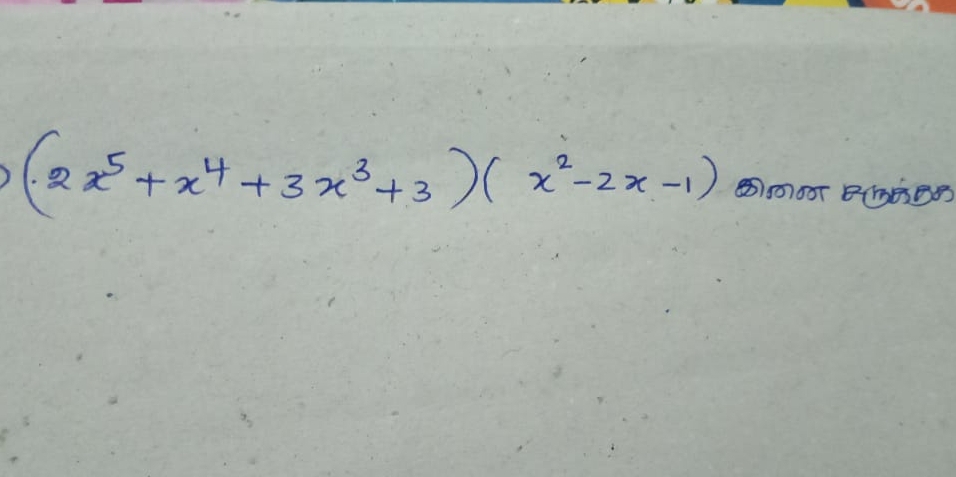 (2x⁵ + x⁴ + 3x³ + 3)(x² - 2x - 1) இனை சுருக்குக